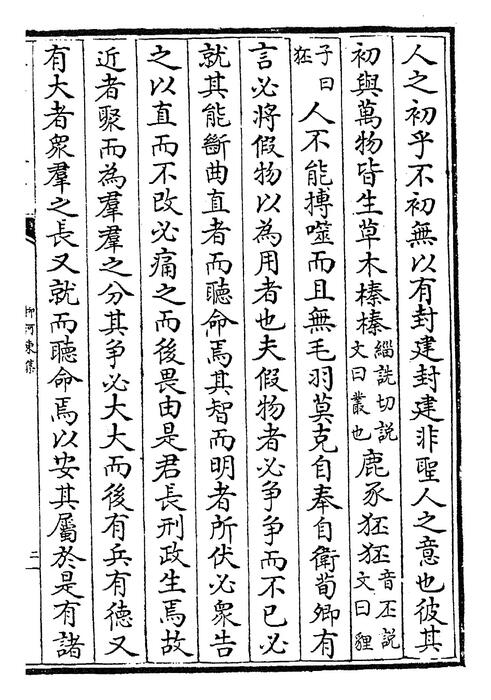 人之初乎不初無以有封建封建非聖人之意也彼其
初與萬物皆生草木榛榛緇詵切說文曰叢也鹿豕狉狉音丕說文曰貍
子曰狉人不能搏噬而且無毛羽莫克自奉自衛荀卿有
言必將假物以為用者也夫假物者必争争而不已必
就其能斷曲直者而聽命焉其智而明者所伏必衆告
之以直而不改必痛之而後畏由是君長刑政生焉故
近者聚而為羣羣之分其争必大大而後有兵有德又
有大者衆羣之長又就而聽命焉以安其屬於是有諸
柳河東集
二